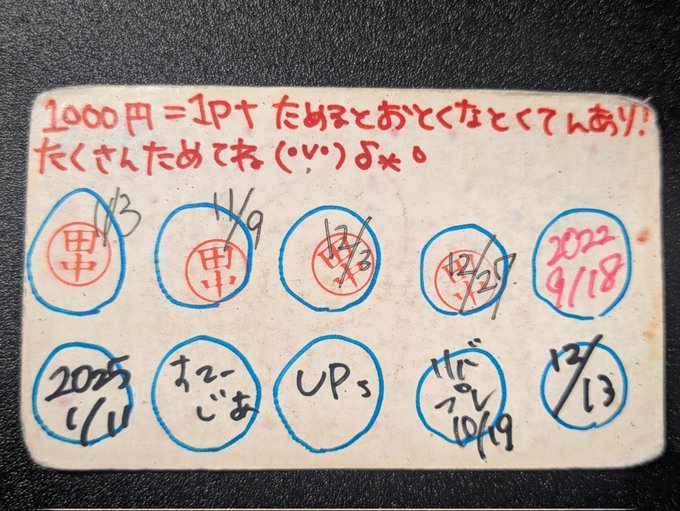 1000円=1Pt ためるとおとくなとくてんあり!
たくさんためてね(・v・)δ*。
田中 11/3
田中 11/9
田中 12/3
田中 12/27
2022
9/18
2025
1/11
じあ
UPs
リバ
プレ
10/19
12/13